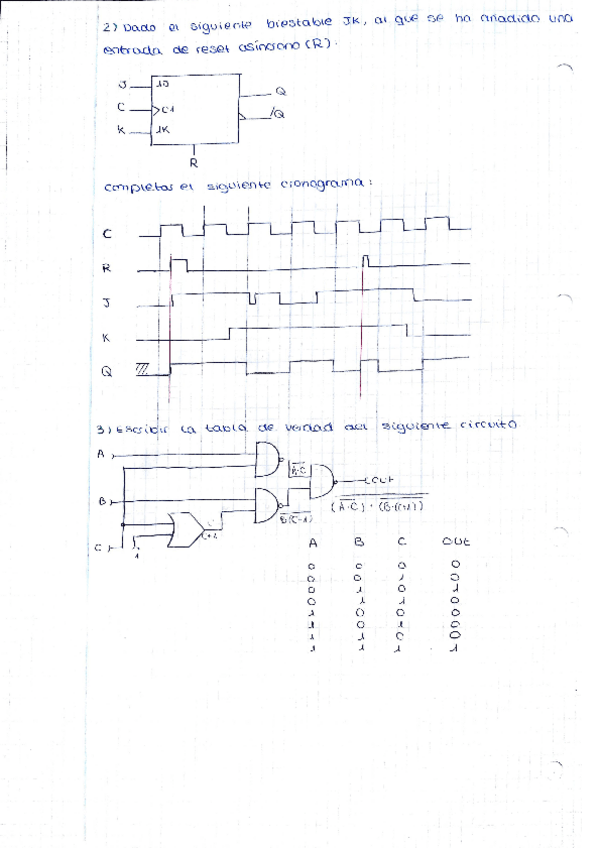 2) Dado el siguiente biestable JK, al que se ha añadido una
entrada de reset asíncrono (R).
J 1J
C C1
K 1K
Q
/Q
R
Completas el siguiente cronograma:
C
R
J
K
Q
3) Escribir la tabla de verdad del siguiente circuito
A
B
C
1
A·C
OUT
A B C OUT
0 0 0 0
0 0 1 0
0 1 0 1
0 1 1 0
1 0 0 0
1 0 1 0
1 1 0 0
1 1 1 1